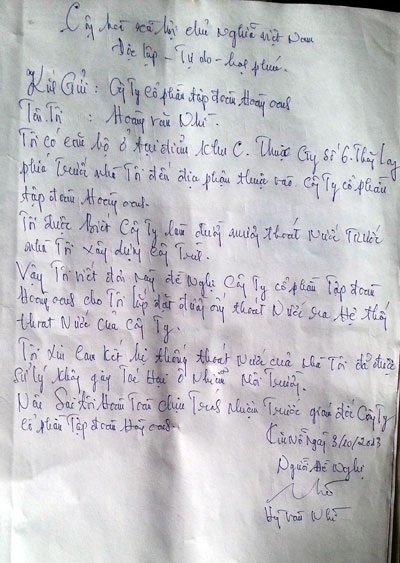 Cộng hòa xã hội chủ nghĩa việt Nam
Độc lập - Tự do - hạnh phúc.
Kính Gửi : Công Ty cổ phần tập đoàn Hoàng
Tên Tôi : Hoàng văn Nhĩ.
Tôi có căn hộ ở tại điểm khu C. Thuộc Cty số 6. Thăng Long
phía Trước nhà Tôi đến địa phận thuộc vào. Công Ty cổ phần
tập đoàn Hoàng
Tôi được biết Công Ty làm đường mương thoát Nước Trước
nhà Tôi xây dựng Công Trình.
Vậy Tôi viết đơn này đề Nghị Công Ty cổ phần Tập đoàn
cho Tôi lắp đặt đường ống thoát Nước ra Hệ thống
thoát Nước của Công Ty.
Tôi xin Cam kết hệ thống thoát Nước của nhà Tôi đã được
sử lý không gây Tác Hại ô Nhiễm Môi Trường.
Nếu Sai tôi Hoàn Toàn chịu Trách Nhiệm Trước giám đốc Công Ty
cổ phần Tập đoàn
Ngày 3/10/2013
Người Đề Nghị
Nhĩ
văn Nhĩ